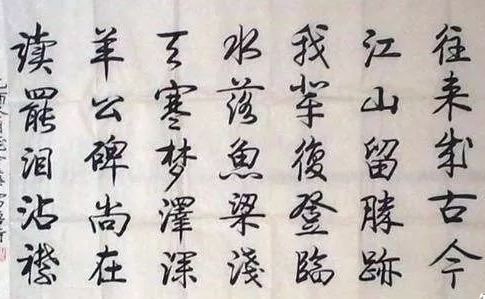 往来成古今
江山留勝跡
我輩復登臨
水落魚梁淺
天寒梦澤深
羊公碑尚在
读罷泪沾襟